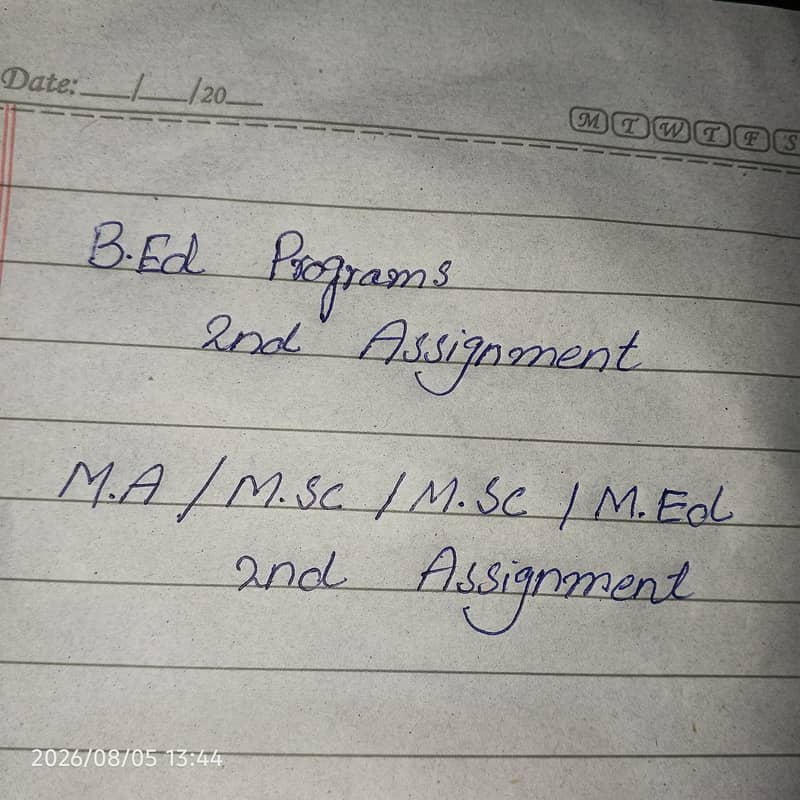 Date:___/___/20___
M T W T F S
B.Ed Programs
2nd Assignment
M.A / M.Sc / M.Sc / M.Ed
2nd Assignment
2026/08/05 13:44